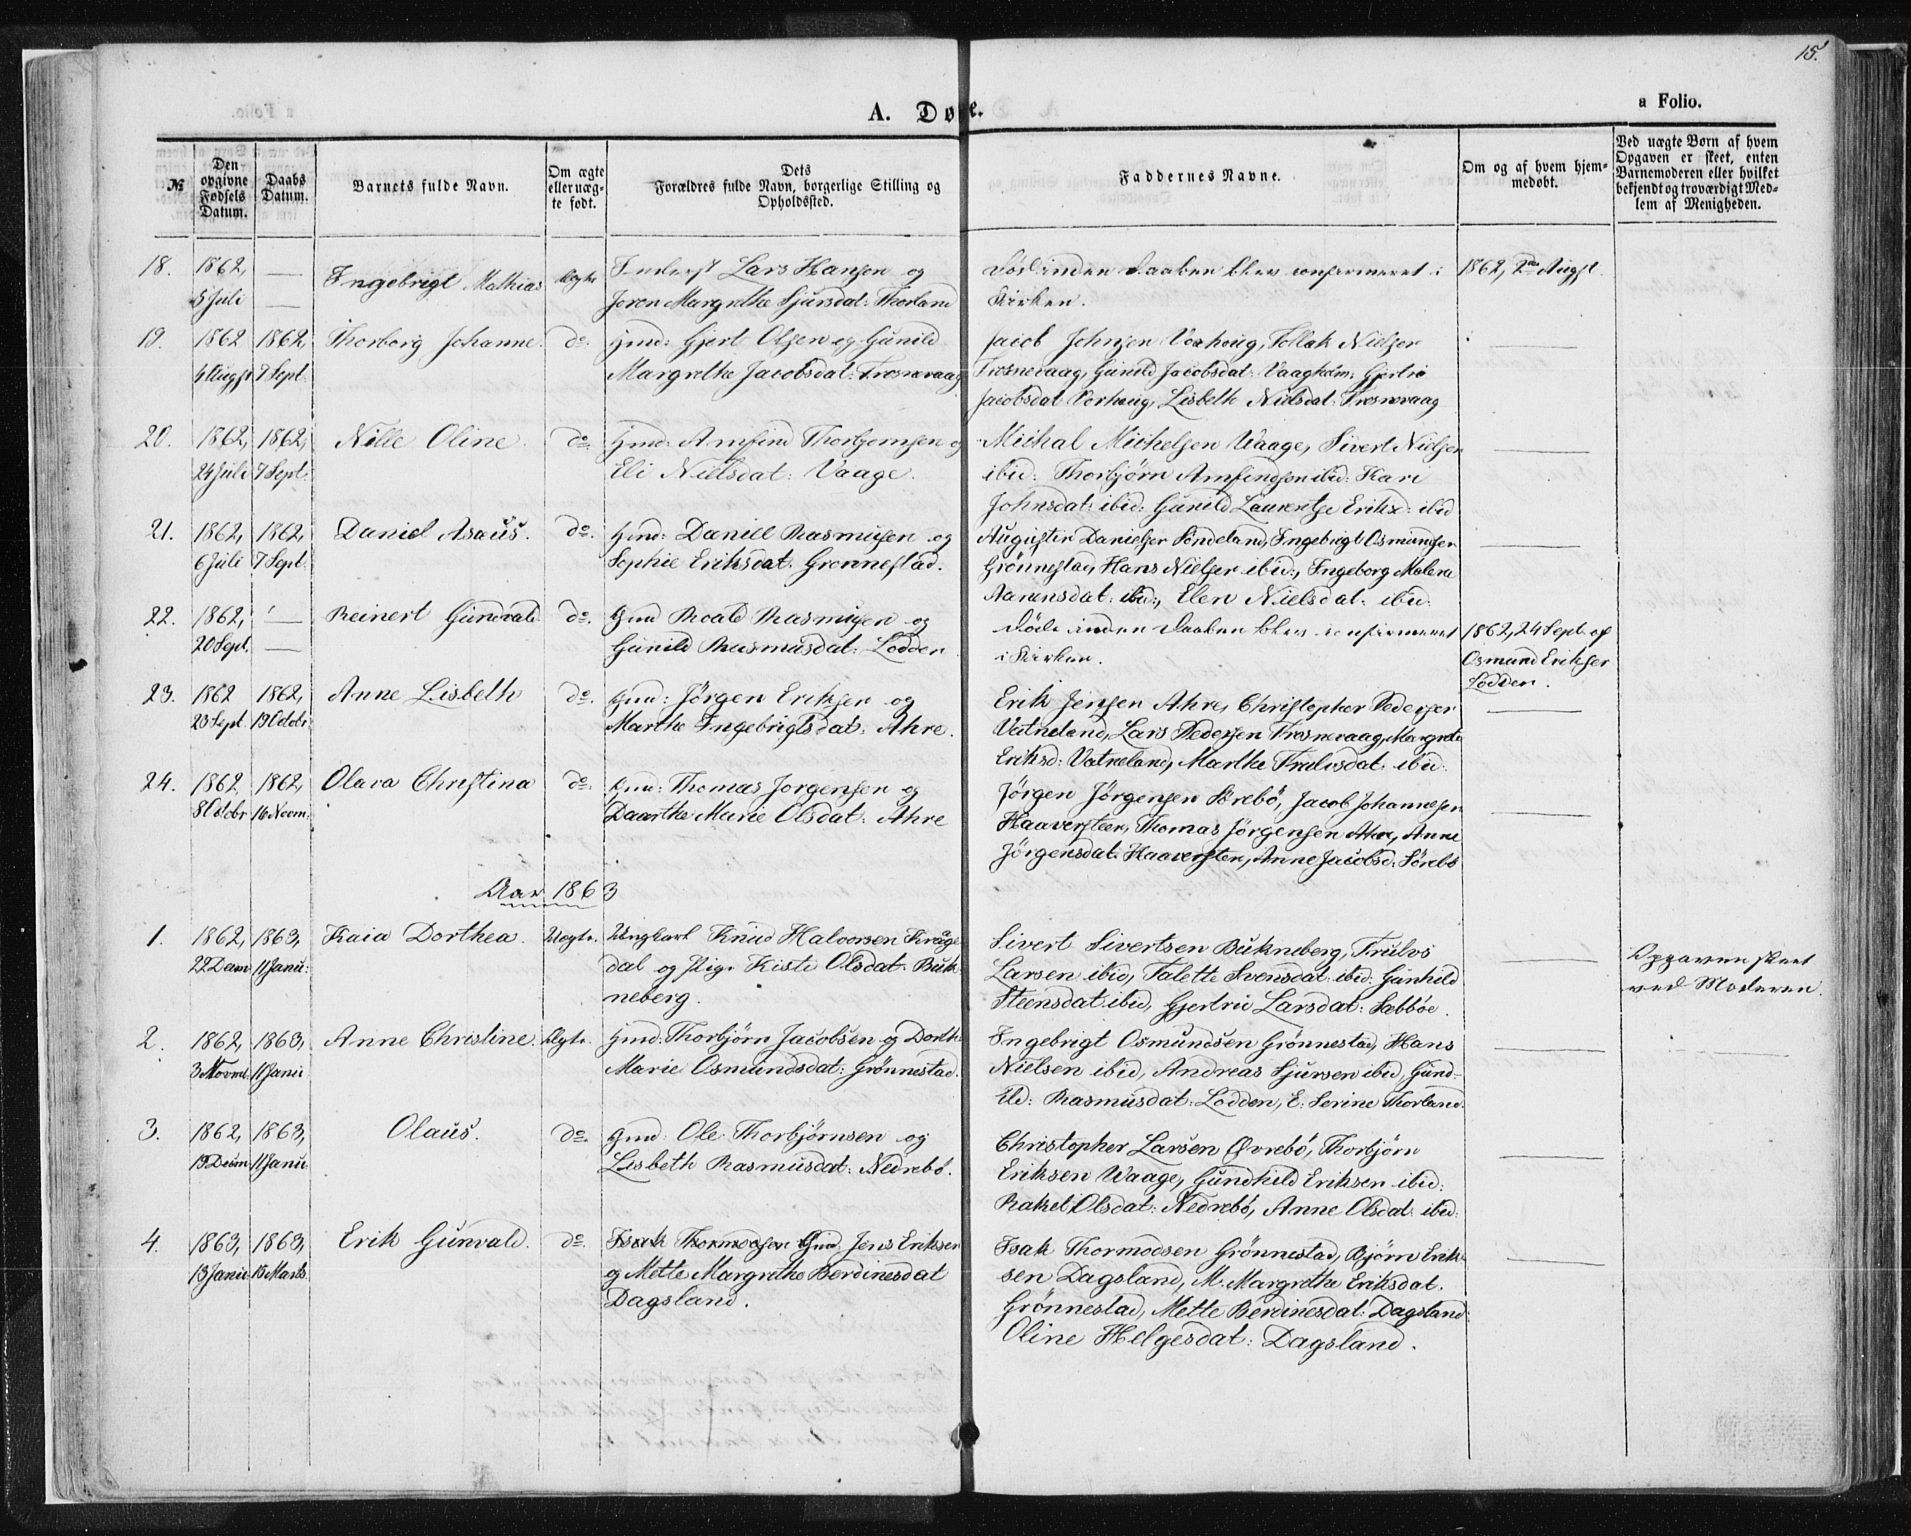 15.
A. Døbe.
a Folio.
№
Den opgivne Fødsels Datum.
Daabs Datum.
Barnets fulde Navn.
Om ægte eller uægte født.
Dets Forældres fulde Navn, borgerlige Stilling og Opholdssted.
Faddernes Navne.
Om og af hvem hjemmedøbt.
Ved uægte Børn af hvem Opgaven er skeet, enten Barnemoderen eller hvilket bekjendt og troværdigt Medlem af Menigheden.
18. 1862, 5 Juli — Ingebrigt Mathias Ægte
Inderst Lars Hansen og
Joren Margrethe Sjursdat: Thorland
Død inden Daaben blev confirmeret i
Kirken.
1862, 2den Augst
19. 1862 4 Augst 1862, 7 Sept. Thorborg Johanne do.
Gmd: Gjert Olsen og Gunild
Margrethe Jacobsdat: Frosnevaag
Jacob Johnsen Vorhoug, Tollak Nielsen
Frosnevaag, Gunild Jacobsdat: Vaagholm, Gjertri
Jacobsdat Vorhoug, Lisbeth Nielsdat: Frosnevaag
20. 1862, 24 Juli 1862, 7 Sept. Nille Oline. do.
Gmd: Arnfind Thorbjornsen og
Eli Nielsdat: Vaage.
Michal Michelsen Waage, Sivert Nielsen
ibid: Thorbjörn Arnfindsen ibid: Kari
Johnsdat: ibid: Gunild Laurentse Eriks: ibid
21. 1862, 6 Juli 1862, 7 Sept. Daniel Asaus. do.
Gmd: Daniel Rasmusen og
Sophie Eriksdat. Grønnestad.
Augustin Danielsen Søndeland, Ingebrigt Osmundsen
Grønnestad, Hans Nielsen ibid:, Ingeborg Malene
Aanensdat: ibid:, Elen Nielsdat: ibid:
22. 1862, 20 Sept. — Reinert Gundvald. do.
Gmd Roald Rasmusen og
Gunild Rasmusdat: Lodden
Døde inden Daaben blev confirmeret
i Kirken.
1862, 24 Sept. af
Osmund Eriksen
Lodden.
23. 1862 23 Sept. 1862, 19 Octobr. Anne Lisbeth do.
Gmd: Jörgen Eriksen og
Marthe Ingebrigtsdat: Ahre.
Erik Jensen Ahre, Christopher Pedersen
Vatneland, Lars Pedersen Frosnevaag, Margrete
Eriksd: Vatneland, Marthe Trulsdat: ibid:
24. 1862 8 Octobr 1862, 16 Novm: Olava Christina do.
Gmd: Thomas Jorgensen og
Daarthe Marie Olsdat: Ahre
Jörgen Jörgensen Sörebö, Jacob Johannesen
Haaversteen, Thomas Jörgensen Ahre, Anne
Jörgensdat. Haaversten, Anne Jacobsd: Sörebö
Aar 1863
1. 1862, 22 Decm 1863, 11 Janu: Kaia Dorthea. Uægte.
Ungkarl Knud Halvorsen Kråge
dal og Pige Kisti Olsdat. Buk
neberg.
Sivert Sivertsen Bukneberg, Trulvs
Larsen ibid, Talette Svensdat ibid. Gunhild
Steensdat ibid, Gjertrie Larsdat: Sæbböe.
Opgaven skeet
ved Moderen
2. 1862, 3 Novmb 1863, 11 Janu Anne Christine. Ægte.
Gmd. Thorbjörn Jacobsen og Dorth.
Marie Osmundsdat: Grönnestad.
Ingebrigt Osmundsen Grönnestad, Hans
Nielsen ibid, Andreas Sjursen ibid, Gund-
ild: Rasmusdat: Lodden, E: Serine Thorland.
3. 1862, 19 Decm 1863, 11 Janu Olaus. do.
Gmd: Ole Thorbjörnsen og
Lisbeth Rasmusdat: Nedrebö.
Christopher Larsen Øvrebö, Thorbjörn
Eriksen Waage, Gundhild Eriksen ibid:
Rakel Olsdat: Nedrebö, Anne Olsdat: ibid:
4. 1863, 13 Janu 1863, 15 Marts Erik Gunvald. do.
Isak Thormodsen Gmd. Jens Eriksen
og Mette Margrethe Berdinesdat
Dagsland.
Isak Thormodsen Grönnestad, Bjørn Erik-
sen Dagsland, M. Margrethe Eriksdat.
Grönnestad, Mette Berdinesdat: Dagsland
Oline Helgesdat: Dagsland.